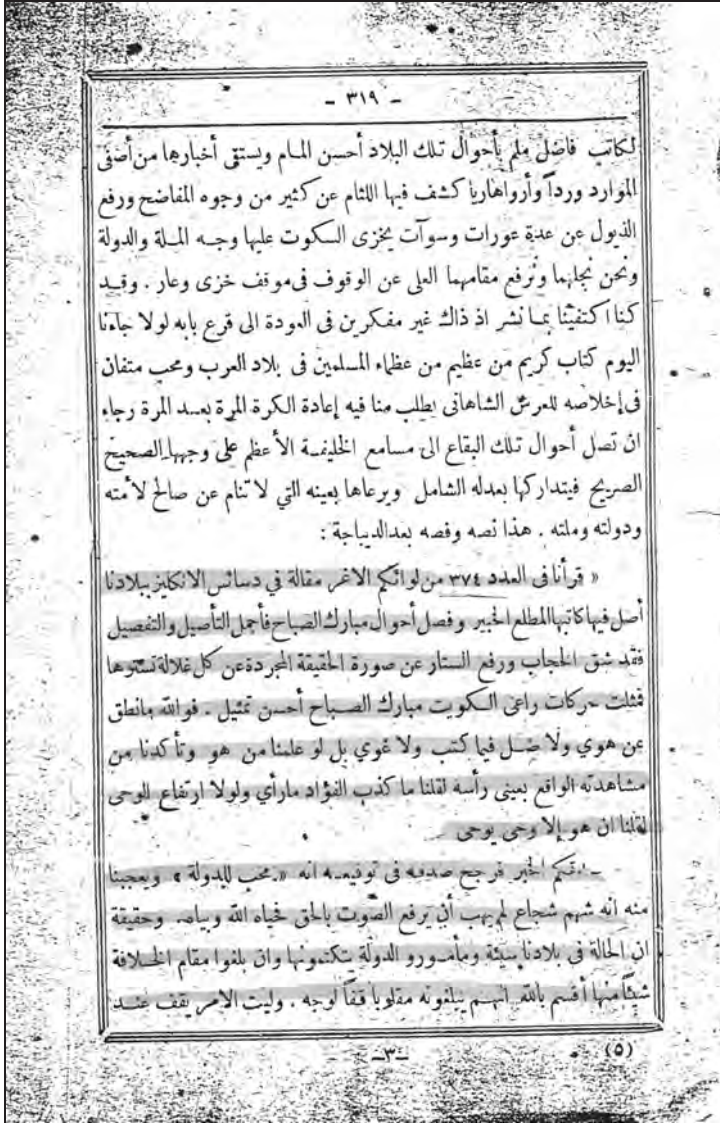 – ٣١٩ –
لكاتب فاضل ملم بأحوال تلك البلاد أحسن المام ويستقى أخبارها من أصفى
الموارد ورداً وأرواها ريا كشف فيها اللثام عن كثير من وجوه المفاضح ورفع
الذيول عن عدة عورات وسوآت يخزى السكوت عليها وجه الملة والدولة
ونحن نجلهما ونرفع مقامهما العلى عن الوقوف فى موقف خزى وعار . وقد
كنا اكتفينا بما نشر اذ ذاك غير مفكرين فى العودة الى قرع بابه لولا جاءنا
اليوم كتاب كريم من عظيم من عظماء المسلمين فى بلاد العرب ومحب متفان
فى إخلاصه للعرش الشاهانى يطلب منا فيه إعادة الكرة المرة بعد المرة رجاء
ان تصل أحوال تلك البقاع الى مسامع الخليفة الأعظم على وجهها الصحيح
الصريح فيتداركها بعدله الشامل ويرعاها بعينه التي لا تنام عن صالح لأمته
ودولته وملته . هذا نصه وفصه بعد الديباجة :
« قرأنا فى العدد ٣٧٤ من لوائكم الاغر مقالة في دسائس الانكليز ببلادنا
أصل فيها كاتبها المطلع الخبير وفصل أحوال مبارك الصباح فأجمل التأصيل والتفصيل
فقد شق الحجاب ورفع الستار عن صورة الحقيقة المجردة عن كل غلالة تسترها
فمثلت حركات راعى الكويت مبارك الصباح أحسن تمثيل . فوالله مانطق
عن هوي ولا ضل فيما كتب ولا غوي بل لو علمنا من هو وتأكدنا من
مشاهدته الواقع بعينى رأسه لقلنا ما كذب الفؤاد مارأي ولولا ارتفاع الوحى
لقلنا ان هو إلا وحى يوحى
الخبر فرجح صدقه فى توقيعه انه « محب للدولة » ويعجبنا
منه انه شهم شجاع لم يهب أن يرفع الصوت بالحق فحياه الله وبياه وحقيقة
ان الحالة فى بلادنا سيئة ومأمورو الدولة يكتمونها وان بلغوا مقام الخلافة
شيئاً منها أقسم بالله انهم يبلغونه مقلوباً قفاً لوجه . وليت الامر يقف عند
(٥)
–٣–